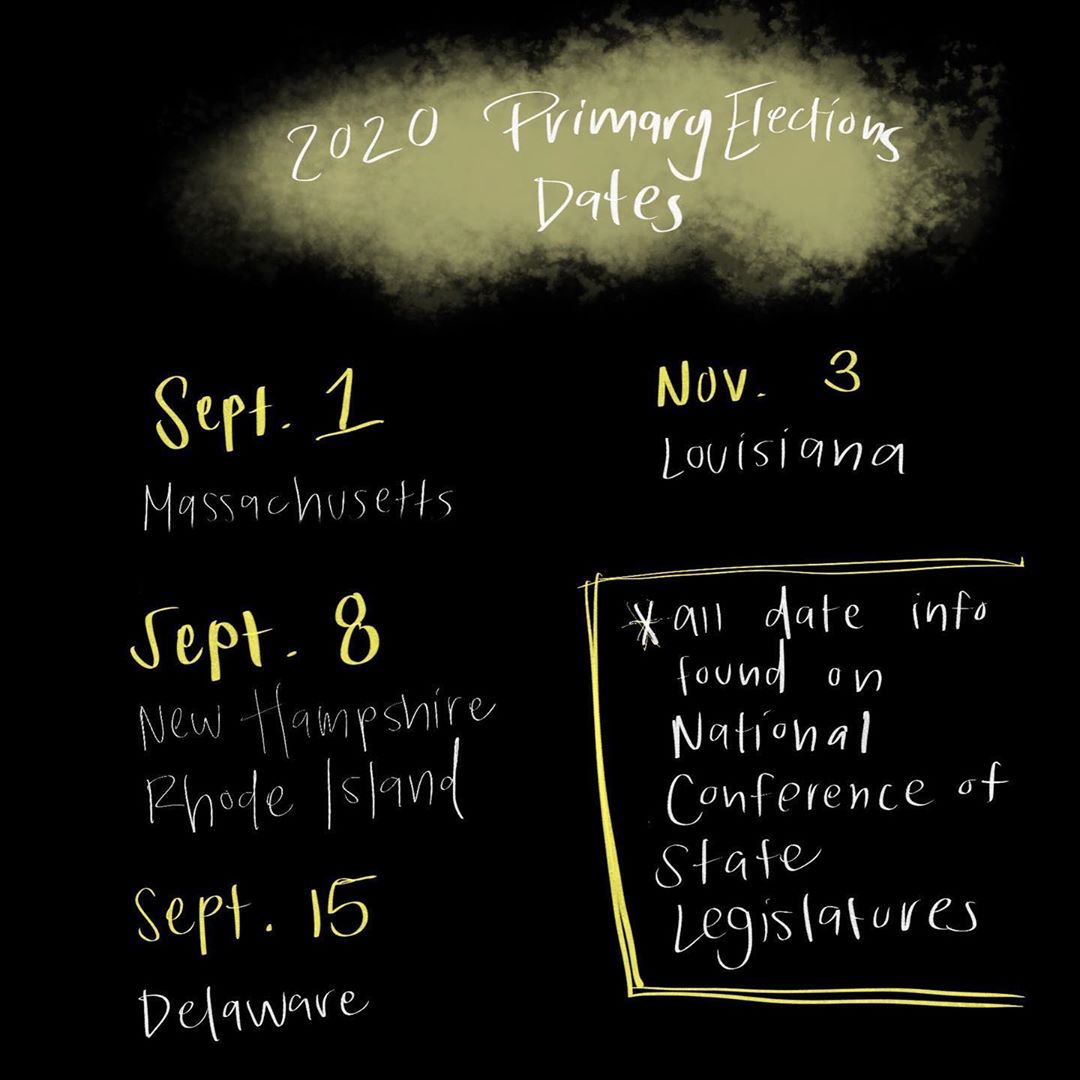 2020 Primary Elections
Dates
Sept. 1
Massachusetts
Sept. 8
New Hampshire
Rhode Island
Sept. 15
Delaware
Nov. 3
Louisiana
*all date info
found on
National
Conference of
State
Legislatures